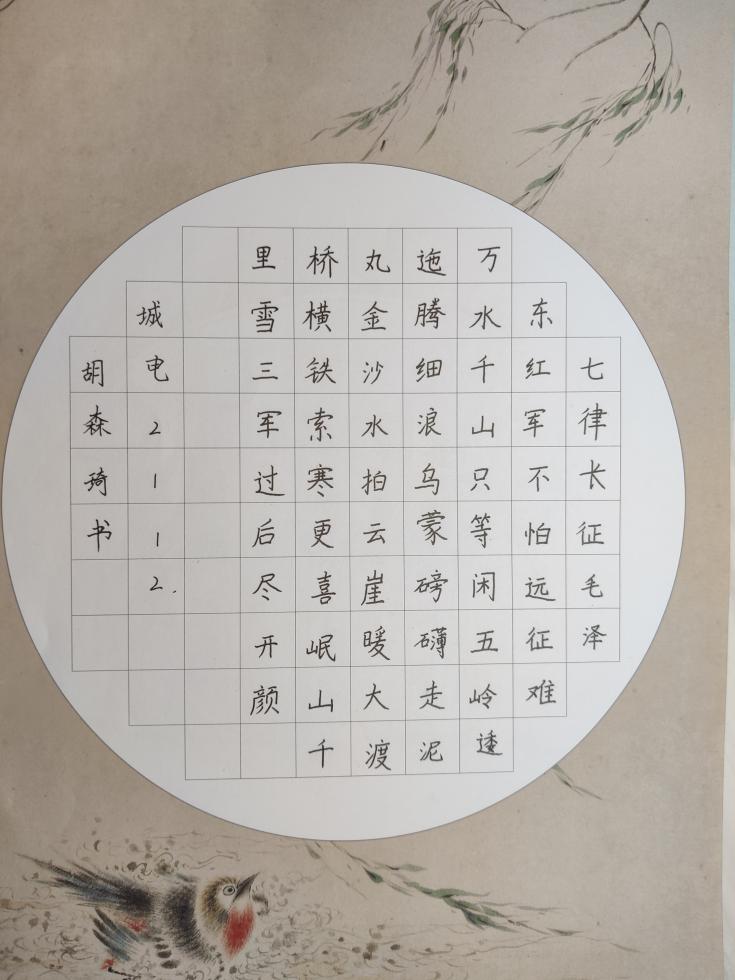 七律长征毛泽
东红军不怕远征难
万水千山只等闲五岭逶
迤腾细浪乌蒙磅礴走泥
丸金沙水拍云崖暖大渡
桥横铁索寒更喜岷山千
里雪三军过后尽开颜
城电2112.
胡森琦书